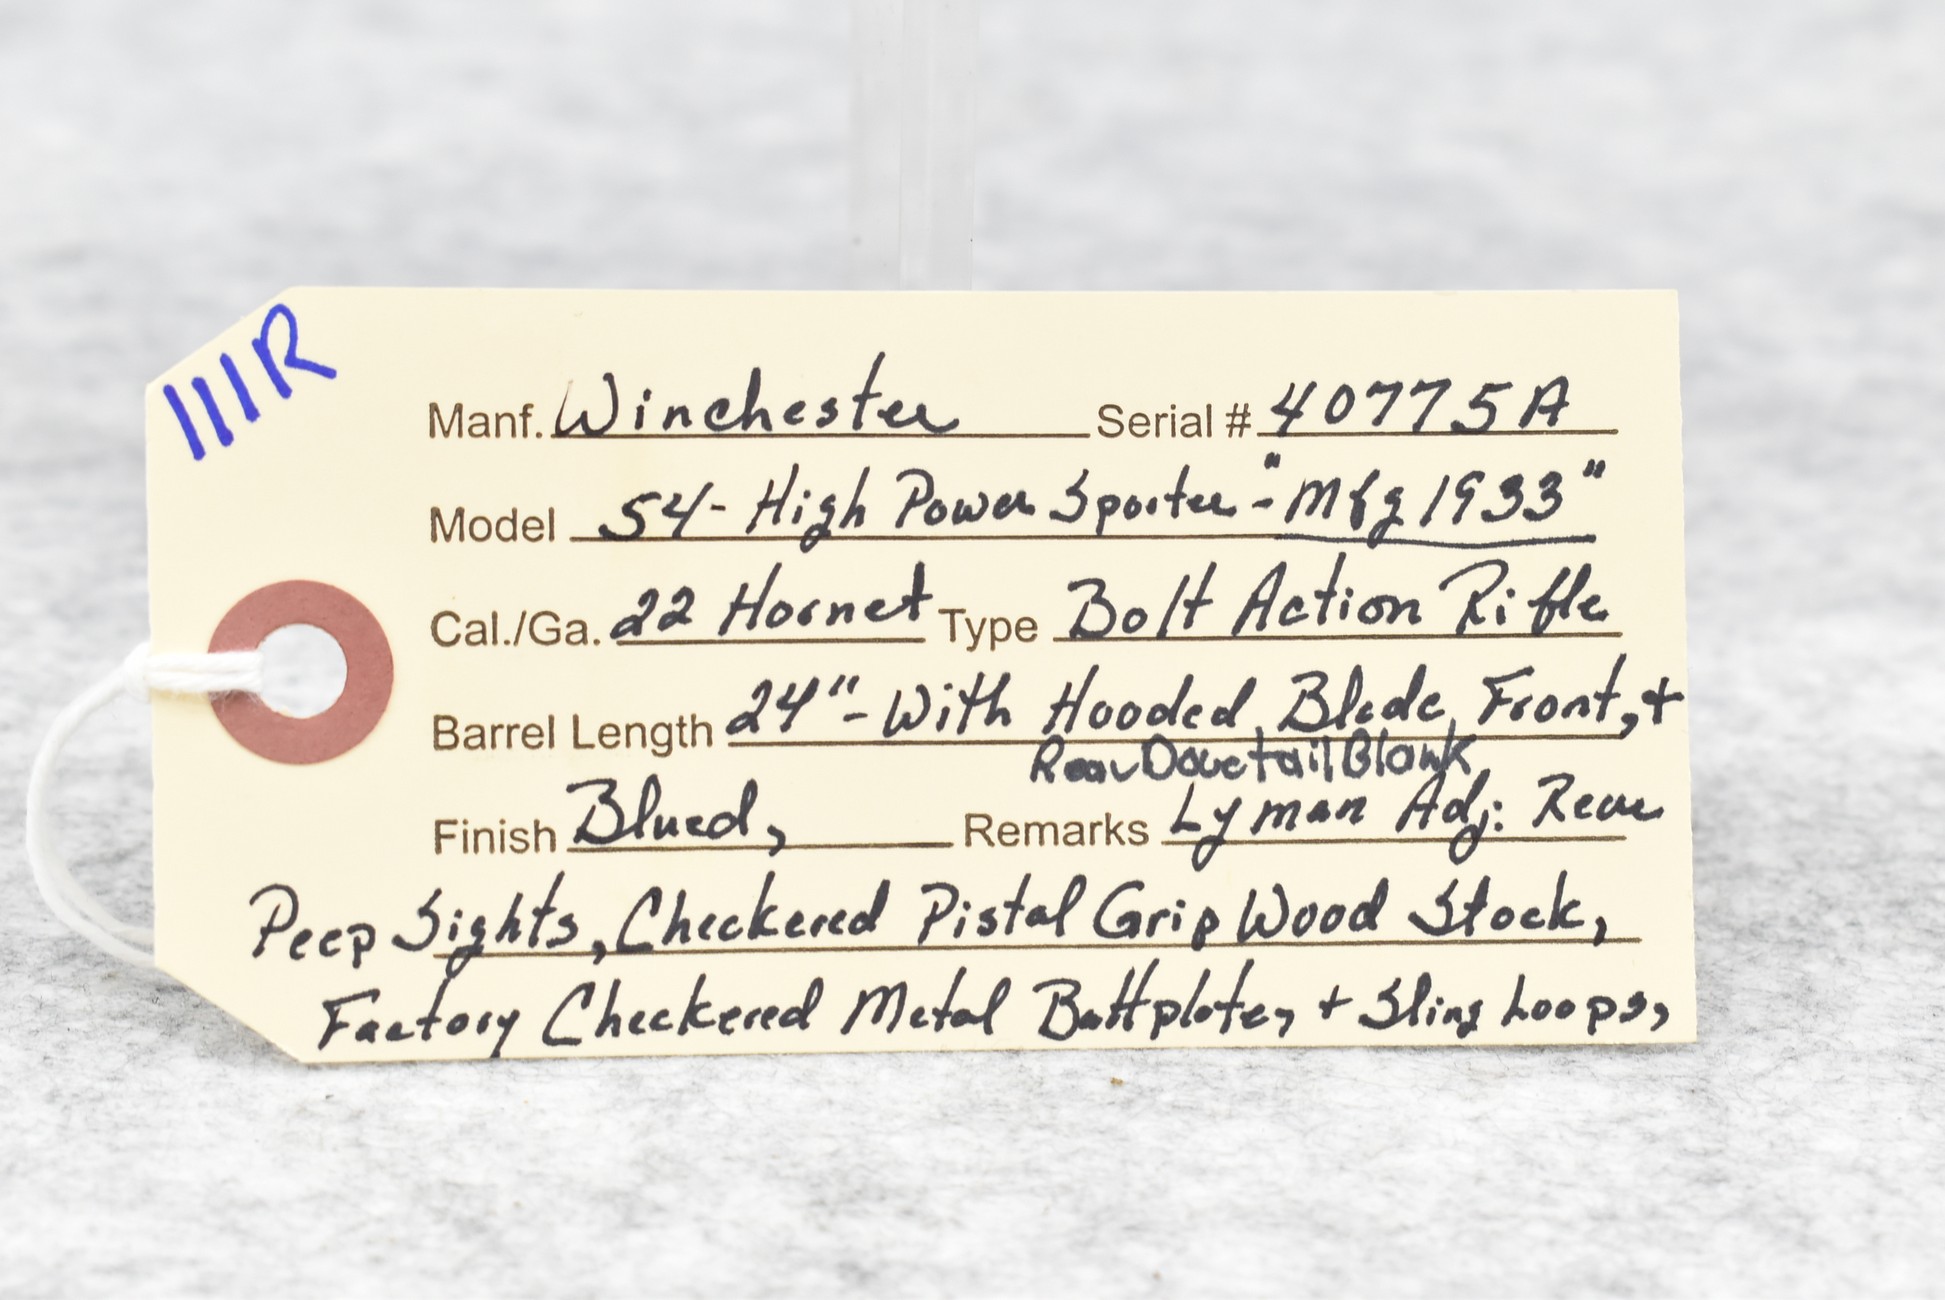 111R
Manf. Winchester Serial # 40775A
Model 54- High Power Sporter - "Mfg 1933"
Cal./Ga. 22 Hornet Type Bolt Action Rifle
Barrel Length 24" - With Hooded Blade Front, +
Rear Dovetail Blank
Finish Blued, Remarks Lyman Adj. Rear
Peep Sights, Checkered Pistal Grip Wood Stock,
Factory Checkered Metal Buttplate, + Sling Loops,